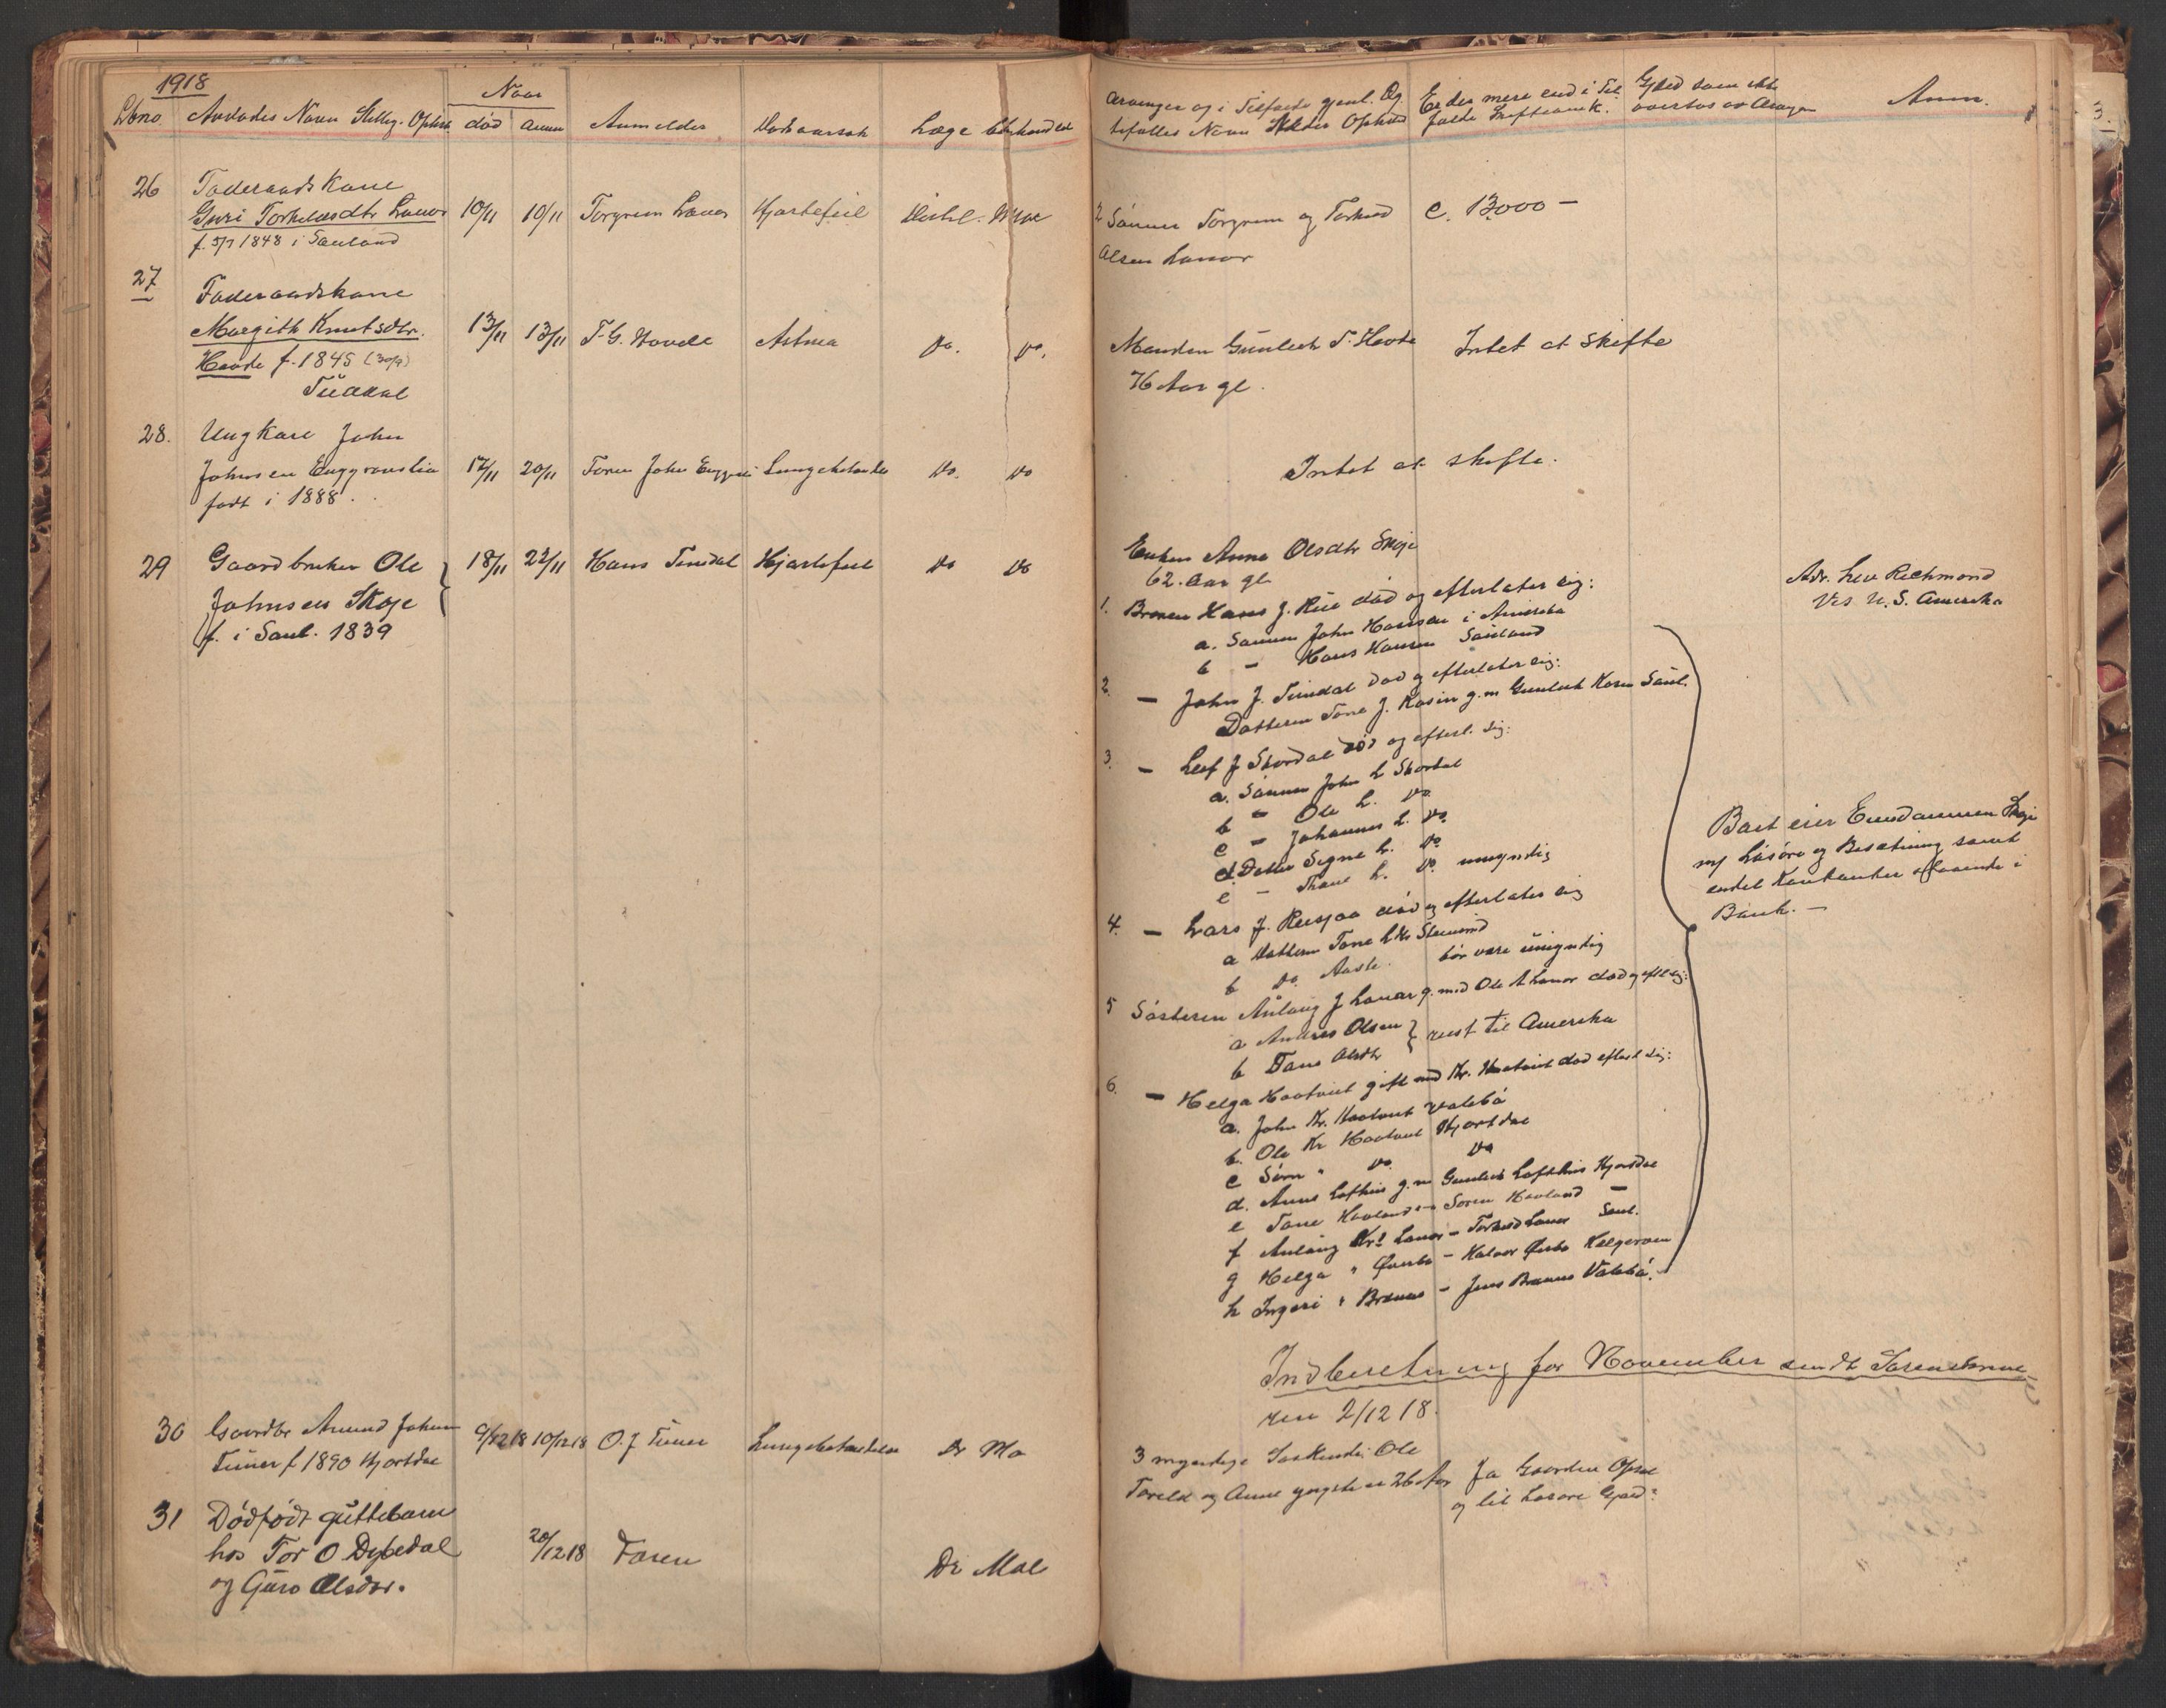 1918
Naar
Lbno. Avdødes Navn Stillig. Ophold død anm Anmelder Dødsaarsak Læge behandlet
26 Føderaadskone
Guri Torkilsdtr Lonar 10/11 10/11 Torgrim Lonar Hjertefeil Distrl. Moe
f. 5/7 1848 i Sauland
27 Føderaadskone
Margith Knutsdtr. 13/11 13/11 T. G. Hovde Astma Do. Do.
Hovde f. 1845 (30/9)
Tuddal
28. Ungkarl John
Johnsen 17/11 20/11 Faren John Lungebetændelse Do. Do
født i 1888.
29 Gaardbruker Ole 18/11 22/11 Hans Tinndal Hjertefeil Do Do
Johnsen Skoje
f. i Saul. 1839
30 Gaardbr Amund Johnsen 9/12 18 10/12 18 O. J. Lungebetændelse Dr Mo
f 1890 Hjartdal
31 Dødfødt guttebarn
hos Tor O. Dybedal 20/12 18 Faren Dr Moe
og Guro Olsdtr.
Arvinger og i Tilfælde gjenl. Æg-
tefælles Navn Alder Ophold Er der mere end i Til
fælde Skifteamk. Gjæld som ikke
overtas av Arvingen Anm.
2 Sønner Torgrim og Torkild c. 13000 –
Olsen Lonar
Manden Gunleik T. Hovde Intet at skifte
76 Aar gl.
Intet at skifte.
Enken Anne Olsdtr Skoje
62. Aar gl.
1. Broren Hans J. Rue død og efterlater sig:
a. Sønnen John Hansen i Amerika
b – Hans Hansen Sauland
Adr. Richmond
U. S. Amerika
2. – John J. Tinndal død og efterlater sig:
Datteren Tone J. Kosin g. m Gunleik Kosin Saul.
3. – Leif J Skordal død og efterl. sig:
a. Sønnen John L Skordal
b – Ole L. Do.
c – Johannes L. Do.
d. Datter Signe L. Do
e – L. Do. umyndig
Boet eier Eiendommen Skoje
m/ Løsøre og Besætning samt
endel Kontanter i
Bank. –
4. – Lars J. død og efterlater sig
a Datteren Tone
b Do. Aaste. bør være umyndig
5 Søsteren Aslaug J Lonar g. med Ole Lonar død og efterl sig:
a Andres Olsen } reist til Amerika
b Tone Olsdtr
6. – Helga Haatveit gift med Kr. Haatveit død efterl sig:
a. John Kr. Haatveit Valebø
b. Ole Kr Haatveit Hjartdal
c Søren " Do. Do
d. Anne Lofthus g. m Gunleik Lofthus Hjartdal
e Tone Hovland – Soren Hovland –
f Aslaug Kr. Lonar – Torkild Lonar Saul.
g Helga " – Halvor Helgeroen
h Ingeri " – Jens Valebø.
Indberetning for November sendt Sorenskrive-
ren 2/12 18.
3 myndige Søskende: Ole
Torild og Anne yngste er 26 Aar Ja Gaarden
og lit Løsøre Gjæld?